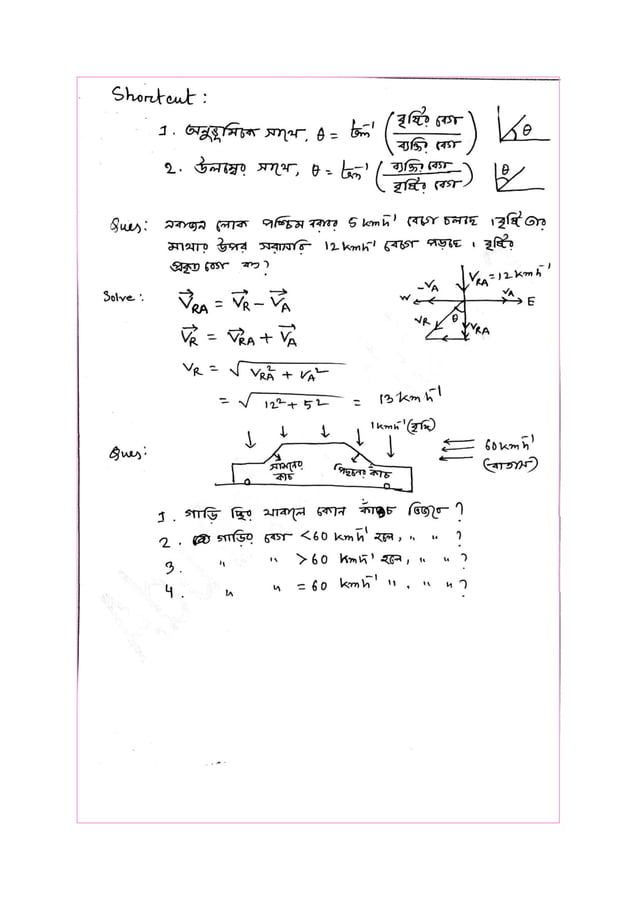 Shortcut :
1. অনুভূমিকের সাথে, θ = tan⁻¹ (বৃষ্টির বেগ / ব্যক্তির বেগ) θ
২. উলম্বের সাথে, θ = tan⁻¹ (ব্যক্তির বেগ / বৃষ্টির বেগ) θ
Ques: একজন লোক পশ্চিম বরাবর 5 kmh⁻¹ বেগে চলছে । বৃষ্টি তার
মাথার উপর সরাসরি 12 kmh⁻¹ বেগে পড়ছে । বৃষ্টির
প্রকৃত বেগ কত?
Solve: V⃗RA = V⃗R − V⃗A
V⃗R = V⃗RA + V⃗A
VR = √(VRA² + VA²)
= √(12² + 5²) = 13 kmh⁻¹
VRA = 12 kmh⁻¹
-VA VA
W E
VR θ VRA
Ques:
1 kmh⁻¹ (বৃষ্টি)
60 kmh⁻¹
(বাতাস)
সামনের কাঁচ
পিছনের কাঁচ
1. গাড়ি স্থির থাকলে কোন কাঁচ ভিজবে ?
2. গাড়ির বেগ < 60 kmh⁻¹ হলে, " " ?
3. " " > 60 kmh⁻¹ হলে, " " ?
4. " " = 60 kmh⁻¹ ", " " ?